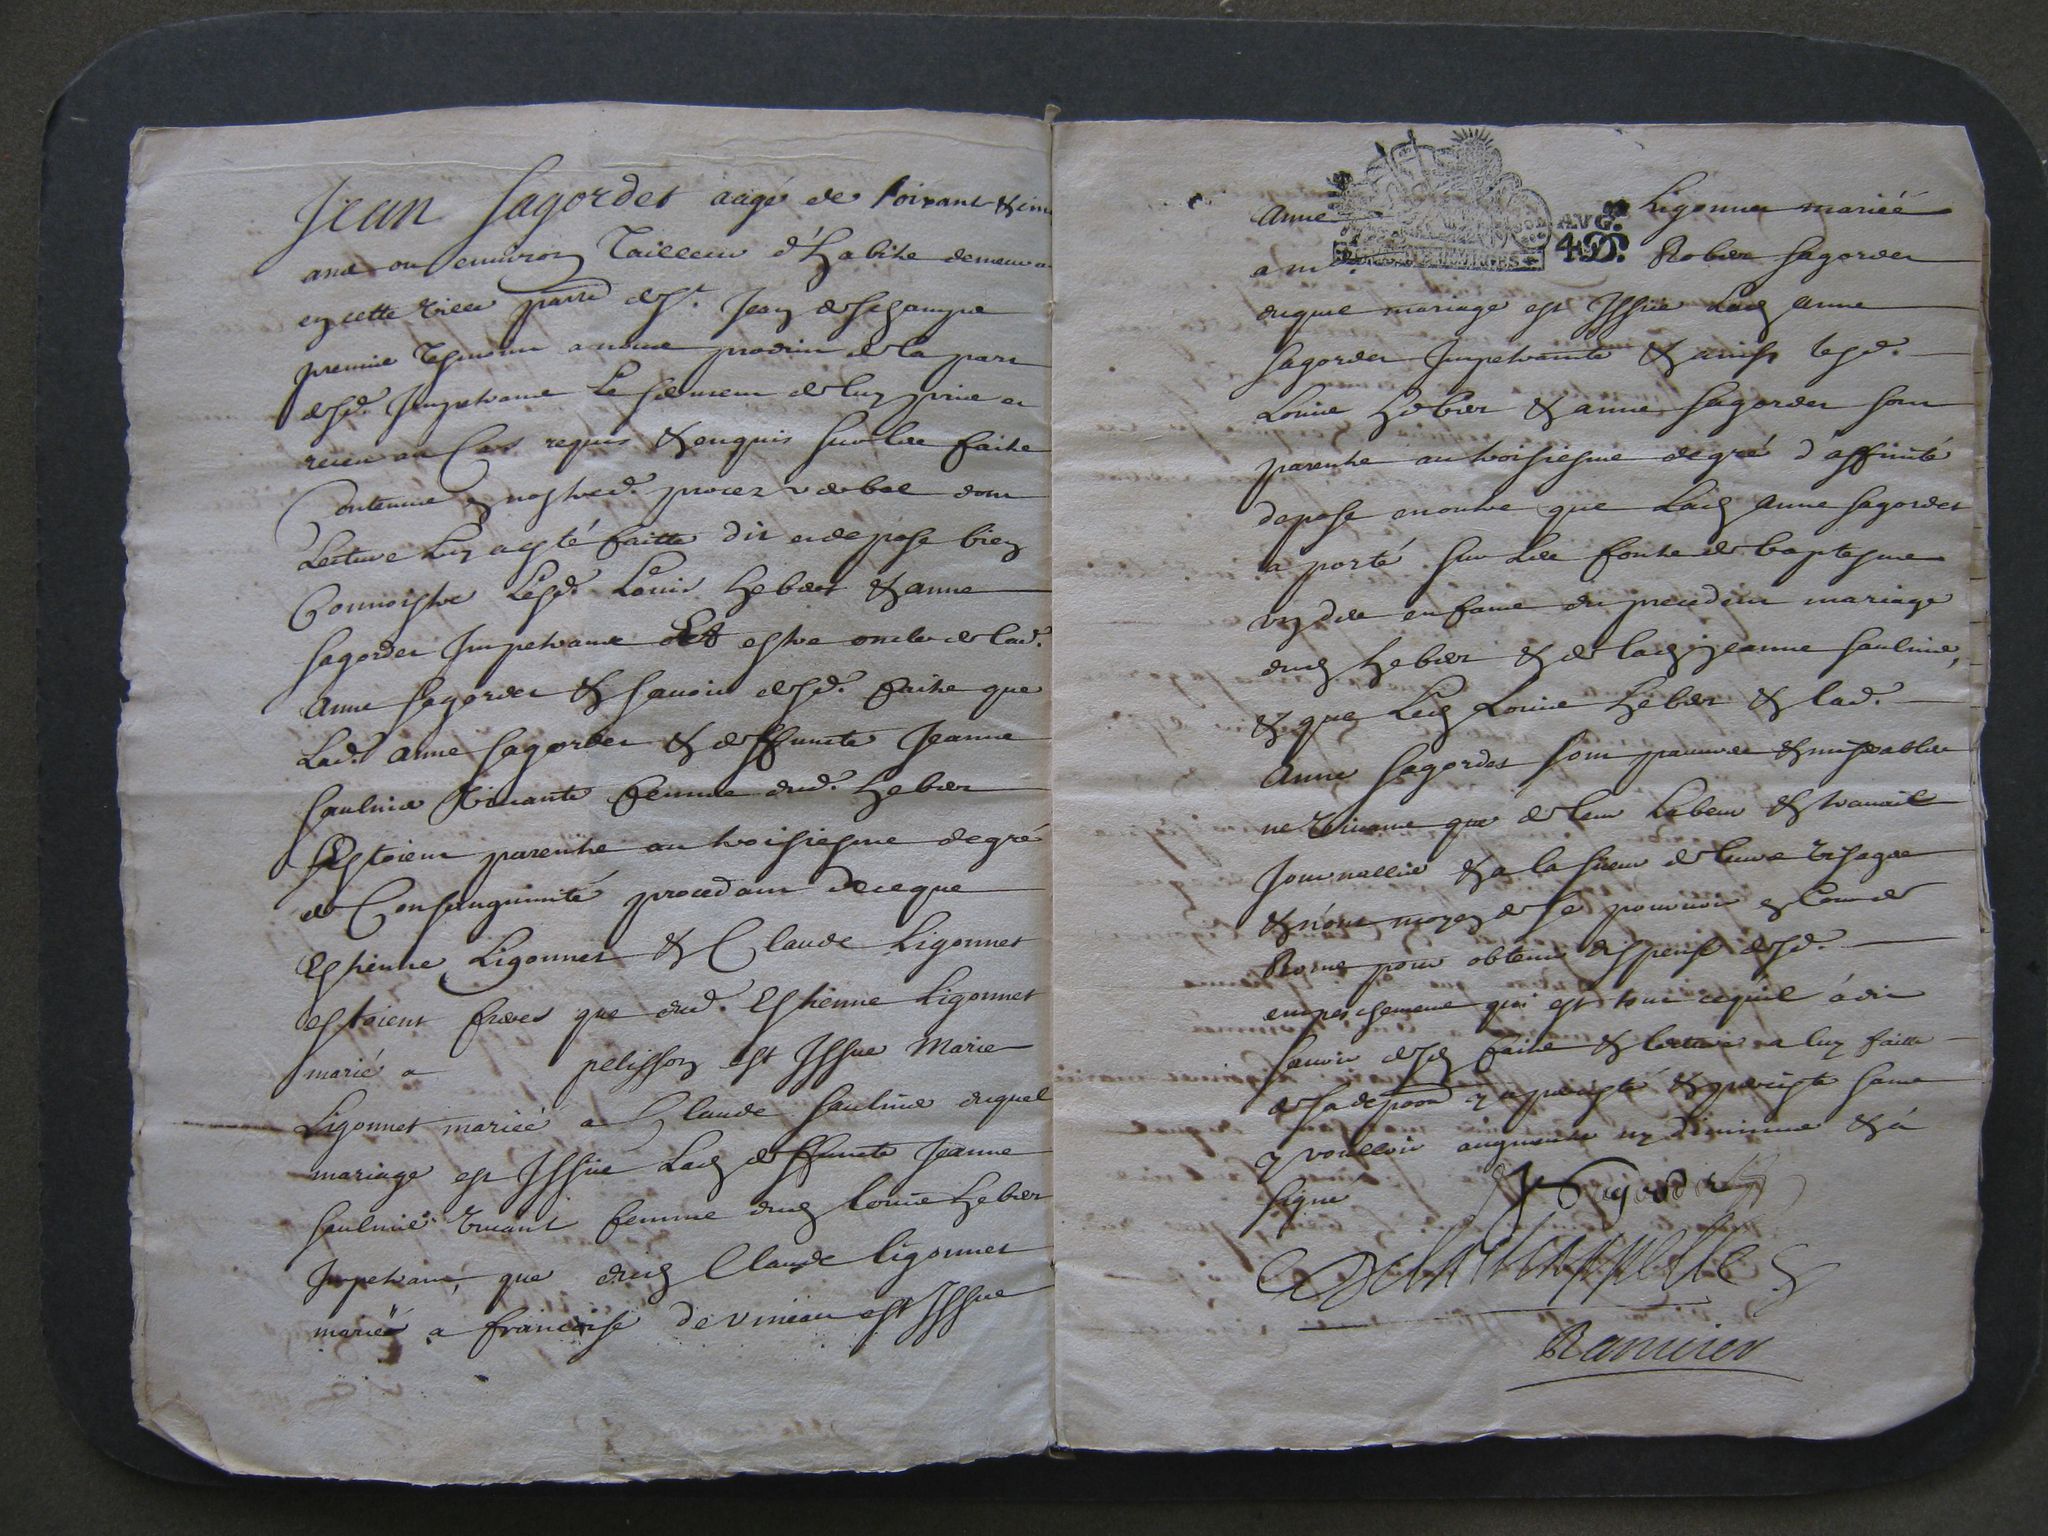 Jean Sagordet aagé de soixant & cinq
ans ou environ Tailleur d'habits demeurant
en cette ville parre de St. Jean
premier tesmoin a nous produit de la part
desd. Impetrans Le serment de luy prins et
receu au Cas requis & enquis sur les faits
Contenus en nostred. procez verbal dont
Lecture luy a esté faitte dit et depose bien
Connoistre Lesd. Louis hebert & anne
Sagordet Impetrans estre oncle de lad.
Anne Sagordet & Sauoir desd. faits que
Lad. anne Sagordet & deffuncte Jeanne
Saulnier viuante femme dud. hebert
Estoient parents au troisiesme degré
de Consanguinité procedant de ce que
Estienne Ligonnet & Claude Ligonnet
estoient freres que dud. Estienne Ligonnet
marié a pelisson est Issue Marie
Ligonnet mariéé a Claude Saulnier duquel
mariage est Issüe Lad deffuncte Jeanne
Saulnier viuant femme dud Louis hebert
Impetrant, que dud Claude ligonnet
marié a francoise devineau est Issue
Anne Ligonnet mariéé
AVG.
4 D.
a me. Robert Sagordet
duquel mariage est Issüe Lad Anne
Sagordet Impetrante & ainsy lesd.
Louis hebert & anne Sagordet sont
parents au troisiesme degré d'affinité
depose en outre que Lad Anne Sagordet
a porté sur Les fonts de baptesme
vn des enfans du precedent mariage
dud hebert & de lad jeanne Saulnier,
& que Led Louis hebert & lad.
Anne Sagordet sont pauures & miserables
ne viuans que de leur Labeur & trauail
Journallier & a la sueur de leurs visages
& n'ont moyen de se pouruoir en Cour de
Rome pour obtenir dispense desd.
empeschemens qui est tout cequil á dit
sauoir desd faits & lecture a luy faitte
de sa depoon y a persisté & persiste sans
y voulloir augmenter ny diminuer & á
signe J Sagordet
Ranvier